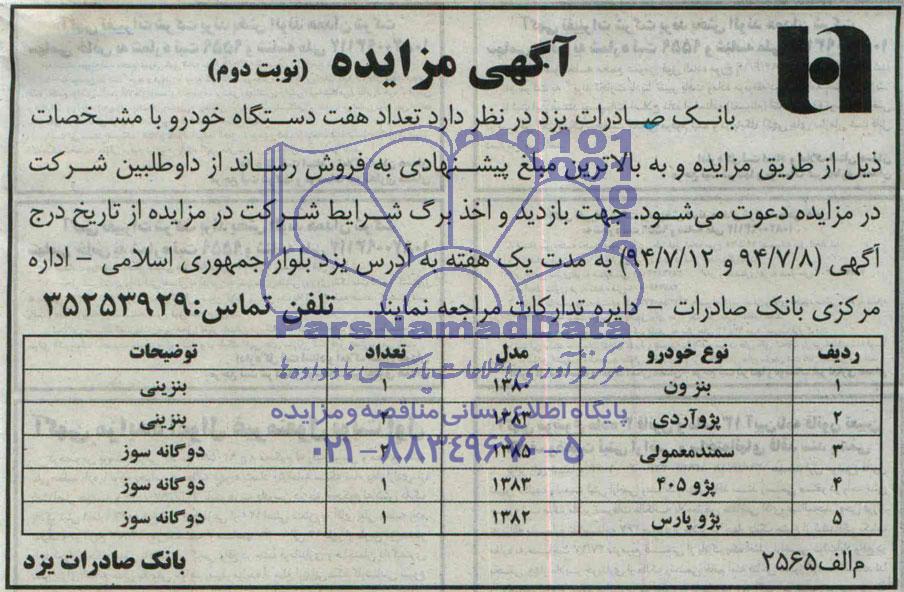 آگهی مزایده (نوبت دوم)
بانک صادرات یزد در نظر دارد تعداد هفت دستگاه خودرو با مشخصات
ذیل از طریق مزایده و به بالاترین مبلغ پیشنهادی به فروش رساند از داوطلبین شرکت
در مزایده دعوت می‌شود. جهت بازدید و اخذ برگ شرایط شرکت در مزایده از تاریخ درج
آگهی (۹۴/۷/۸ و ۹۴/۷/۱۲) به مدت یک هفته به آدرس یزد بلوار جمهوری اسلامی - اداره
مرکزی بانک صادرات - دایره تدارکات مراجعه نمایند. تلفن تماس: ۳۵۲۵۳۹۲۹
ردیف نوع خودرو مدل تعداد توضیحات
۱ بنز ون ۱۳۸۰ ۱ بنزینی
۲ پژوآردی ۱۳۸۳ ۲ بنزینی
۳ سمندمعمولی ۱۳۸۵ ۲ دوگانه سوز
۴ پژو ۴۰۵ ۱۳۸۳ ۱ دوگانه سوز
۵ پژو پارس ۱۳۸۲ ۱ دوگانه سوز
م‌الف ۲۵۶۵ بانک صادرات یزد
ParsNamadData
مرکز فرآوری اطلاعات پارس نماد داده‌ها
پایگاه اطلاع رسانی مناقصه و مزایده
۰۲۱-۸۸۳۴۹۶۷۰-۵